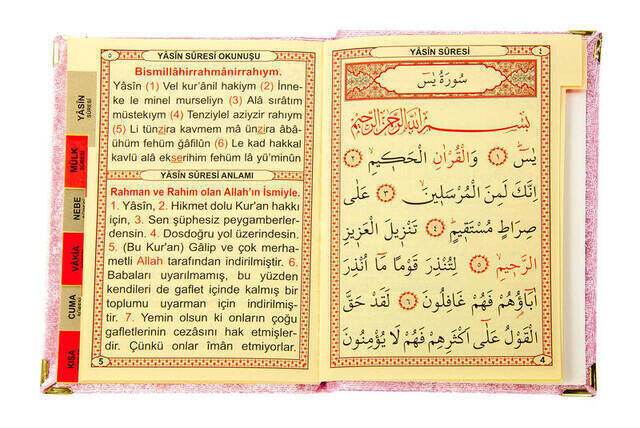 YÂSİN SÛRESİ
٤
سُورَةُ يٰسٓ
بِسْمِ اللّٰهِ الرَّحْمٰنِ الرَّحِيمِ
يٰسٓ ﴿١﴾ وَالْقُرْاٰنِ الْحَكِيمِ ﴿٢﴾
اِنَّكَ لَمِنَ الْمُرْسَلِينَ ﴿٣﴾ عَلٰى
صِرَاطٍ مُسْتَقِيمٍ ﴿٤﴾ تَنْزِيلَ الْعَزِيزِ
الرَّحِيمِ ﴿٥﴾ لِتُنْذِرَ قَوْمًا مَٓا اُنْذِرَ
اٰبَٓاؤُ۬هُمْ فَهُمْ غَافِلُونَ ﴿٦﴾ لَقَدْ حَقَّ
الْقَوْلُ عَلٰٓى اَكْثَرِهِمْ فَهُمْ لَا يُؤْمِنُونَ
4
٥
YÂSİN SÛRESİ OKUNUŞU
Bismillâhirrahmânirrahıym.
Yâsîn (1) Vel kur'ânil hakiym (2) İnne-
ke le minel murseliyn (3) Alâ sırâtım
müstekıym (4) Tenziylel aziyzir rahıym
(5) Li tünzira kavmem mâ ünzira âbâ-
ühüm fehüm ğâfilûn (6) Le kad hakkal
kavlü alâ ekserihim fehüm lâ yü'minûn
YÂSÎN SÛRESİ ANLAMI
Rahman ve Rahim olan Allah'ın İsmiyle.
1. Yâsîn, 2. Hikmet dolu Kur'an hakkı
için, 3. Sen şüphesiz peygamberler-
densin. 4. Dosdoğru yol üzerindesin.
5. (Bu Kur'an) Gâlip ve çok merha-
metli Allah tarafından indirilmiştir. 6.
Babaları uyarılmamış, bu yüzden
kendileri de gaflet içinde kalmış bir
toplumu uyarman için indirilmiş-
tir. 7. Yemin olsun ki onların çoğu
gafletlerinin cezasını hak etmişler-
dir. Çünkü onlar îmân etmiyorlar.
5
YÂSİN
SÛRESİ
MÜLK
SÛRESİ
NEBE
VÂKIA
CUMA
KISA